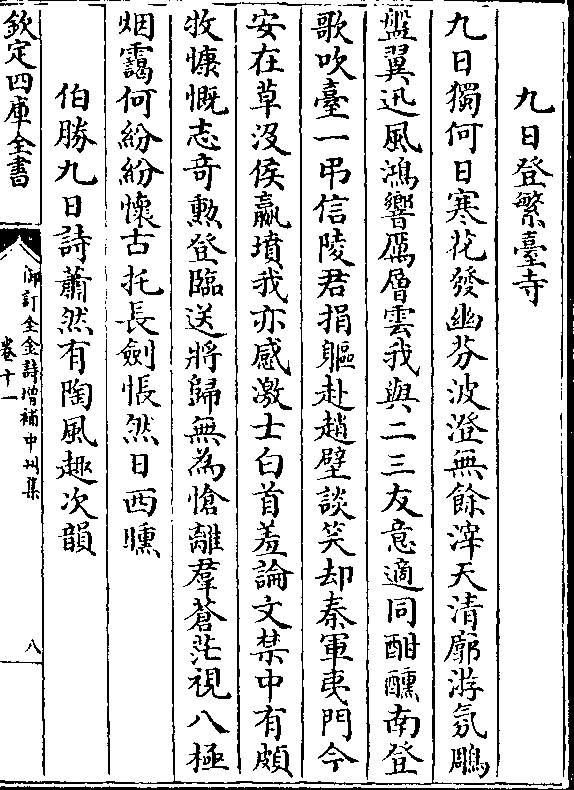 九日登繁臺寺
九日獨何日寒花發幽芬波澄無餘滓天清廓游氛鵰
盤翼迅風鴻響厲層雲我與二三友意適同酣醺南登
歌吹臺一弔信陵君捐軀赴趙壁談笑却秦軍夷門今
安在草沒侯嬴墳我亦感激士白首羞論文禁中有頗
牧慷慨志奇勲登臨送將歸無為愴離羣蒼茫視八極
烟靄何紛紛懷古托長劍悵然日西曛
伯勝九日詩蕭然有陶風趣次韻
欽定四庫全書
御訂全金詩增補中州集
卷十一
八